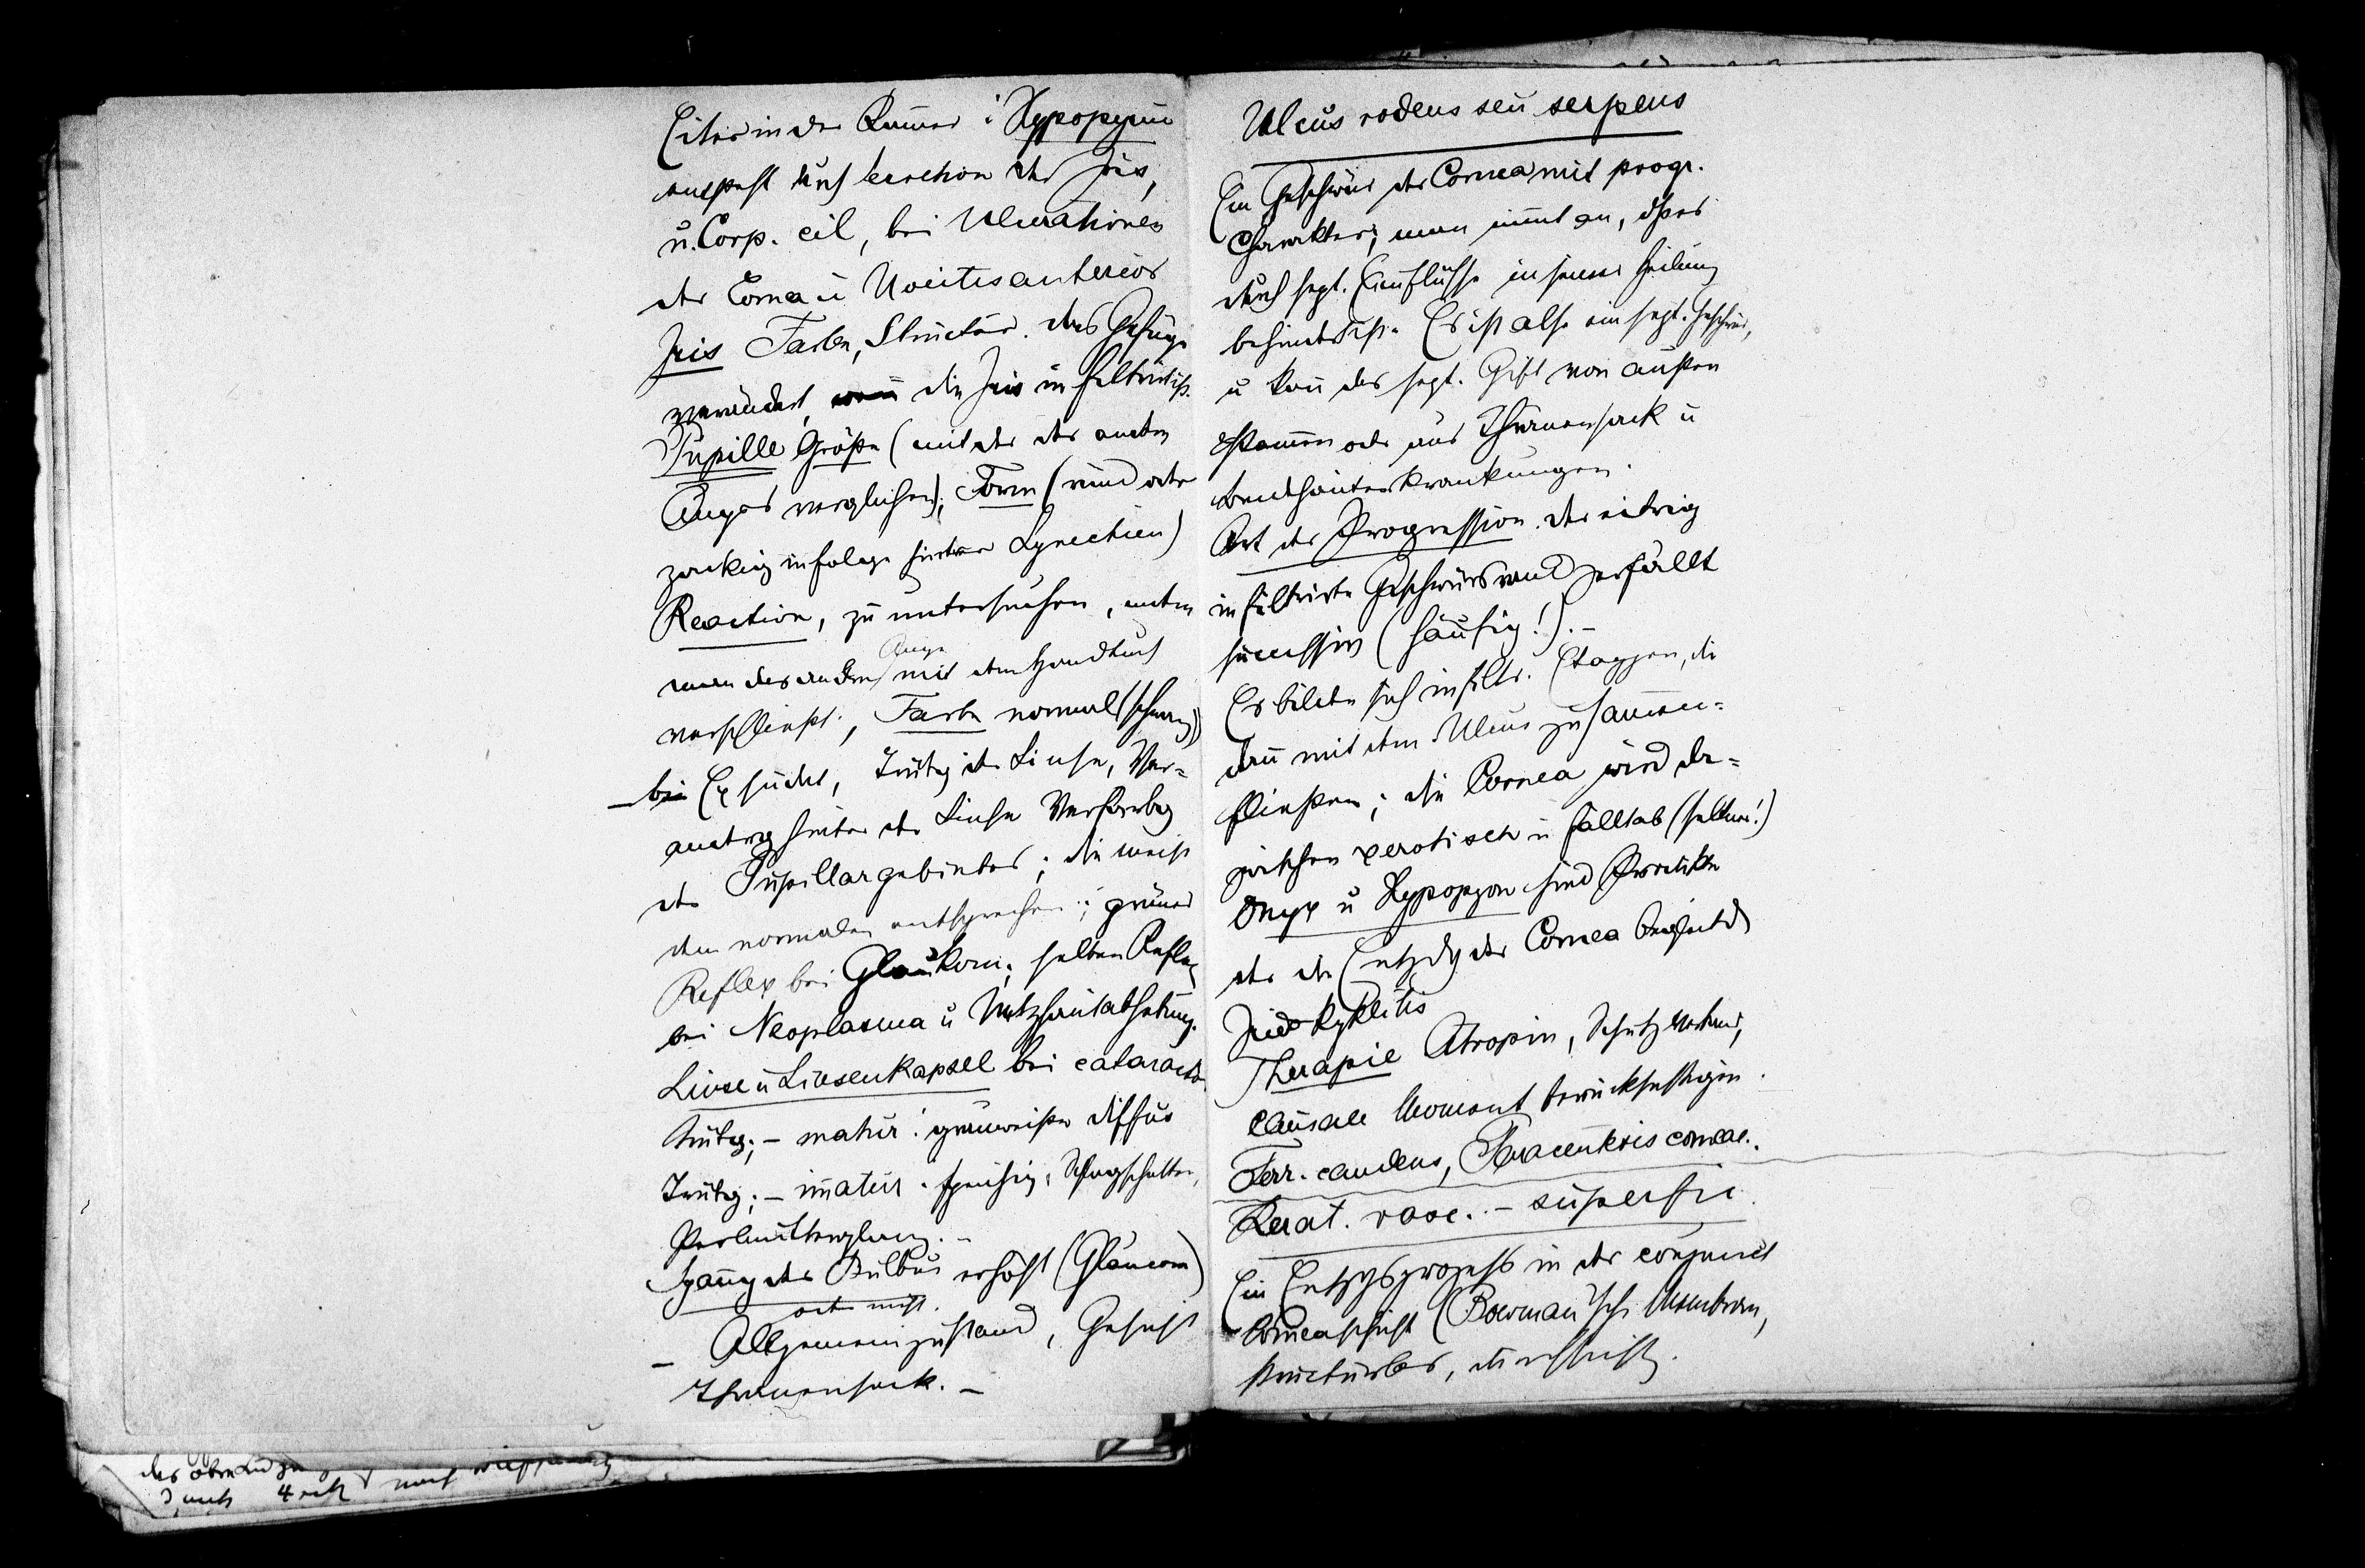 Eiter in der Kammer: Hypopyum
entsteht durch leaction der Iris,
u. Corp. cil, bei Ulcerationen
der Cornea u Uveitis anterior
Iris Farbe, Structur. das Gefüge
verändert, die Iris infiltrirt ist.
Pupille Größe (mit der des andern
Auges verglichen); Form (rund oder
zackig infolge hinterer Synechien)
Reaction, zu untersuchen, indem
man das andere Auge mit dem Handtuch
verschließt; Farbe normal (schwarz)
– bei Exsudat, Trübg der Linse, Ver=
ändrg hinter der Linse Verfärbg
des Pupillargebietes; die meist
dem normalen entsprechen; grüner
Reflex bei Glaukom; gelber Reflex
bei Neoplasma u Netzhautabhebung.
Linse u Linsenkapsel bei cataract
Trübg; – matur: grauweiße diffus
Trübg; – immatur: speichig, Schlagschatten,
Perlmutterglanz. –
Spanng des Bulbus erhöht (Glaucom)
oder nicht.
– Allgemeinzustand, Gesicht
Thränensack. –
Ulcus rodens seu serpens
Ein Geschwür der Cornea mit progr.
Charakter; man nimmt an, dß es
durch sept. Einflüsse in seiner Heilung
behindert ist. Es ist also ein sept. Geschwür,
u kann das sept. Gift von außen
stammen oder aus Thränensack u
Bindehauterkrankungen.
Art der Progression. der eitrig
infiltrirte Geschwürsrand zerfällt
successiv (häufig!). –
Es bilden sich infiltr. Etappen, die
dann mit dem Ulcus zusammen=
fließen; die Cornea wird da=
zwischen xerotisch u fällt ab (selten!)
Onyx u Hypopyon sind Produkte
der die Entzdg der Cornea begleitd
Iridokyklitis
Therapie Atropin, Schutzverband,
causale Moment berücksichtigen.
Ferr. candens, Paracentesis corneae.
Kerat. vasc. – superfic.
Ein Entzdgsprozeß in der conjunct
Corneaschicht (Bowman'sche Membran,
structurlos, durchsichtig.
das obere
durch 4 nach